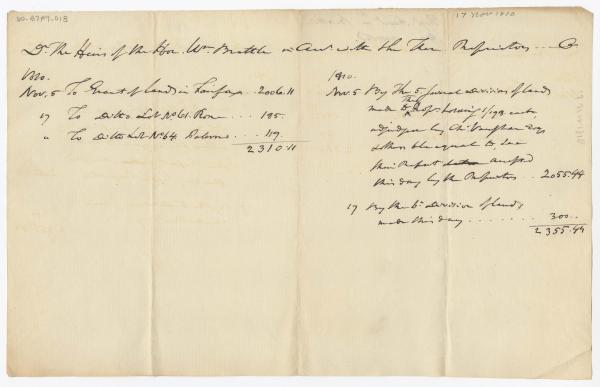 17 Nov 1810
Dr. The Heirs of the Hon. Wm Brattle in Acct with the Ken Proprietors ... Cr
1810.
Nov. 5 To Grant of lands in Fairfax .. 2006.11
17 To Ditto Lot No 61. Rome ... 185.
" To Ditto Lot No 64. Palermo ... 119.
2310.11
1810.
Nov 5 By The 5 several Divisions of lands
made The Props holding 1/192 each,
adjudged by Ch. Vaughan Esq
& others to be equal to, see
their Report accepted
this day by the Proprietors .. 2055.44
17 By the 6th Division of lands
made this day ....... 300..
2355.44